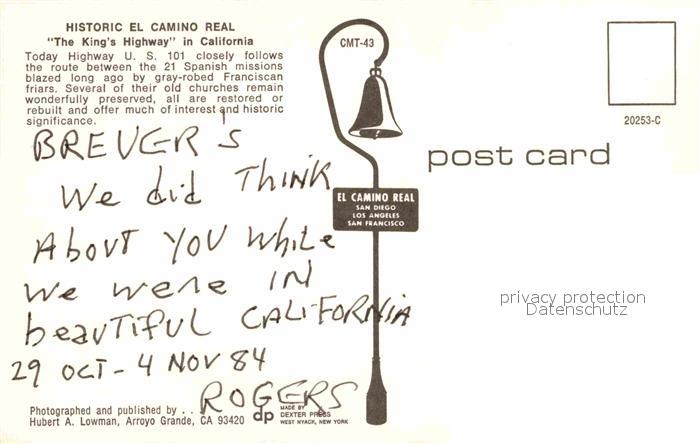 HISTORIC EL CAMINO REAL
"The King's Highway" in California
Today Highway U. S. 101 closely follows
the route between the 21 Spanish missions
blazed long ago by gray-robed Franciscan
friars. Several of their old churches remain
wonderfully preserved, all are restored or
rebuilt and offer much of interest and historic
significance.
BREUER'S
We did THINK
About YOU While
we were IN
beautiful CALIFORNIA
29 OCT - 4 NOV 84
ROGERS
Photographed and published by . .
Hubert A. Lowman, Arroyo Grande, CA 93420
dp
MADE BY
DEXTER PRESS
WEST NYACK, NEW YORK
CMT-43
EL CAMINO REAL
SAN DIEGO
LOS ANGELES
SAN FRANCISCO
20253-C
post card
privacy protection
Datenschutz